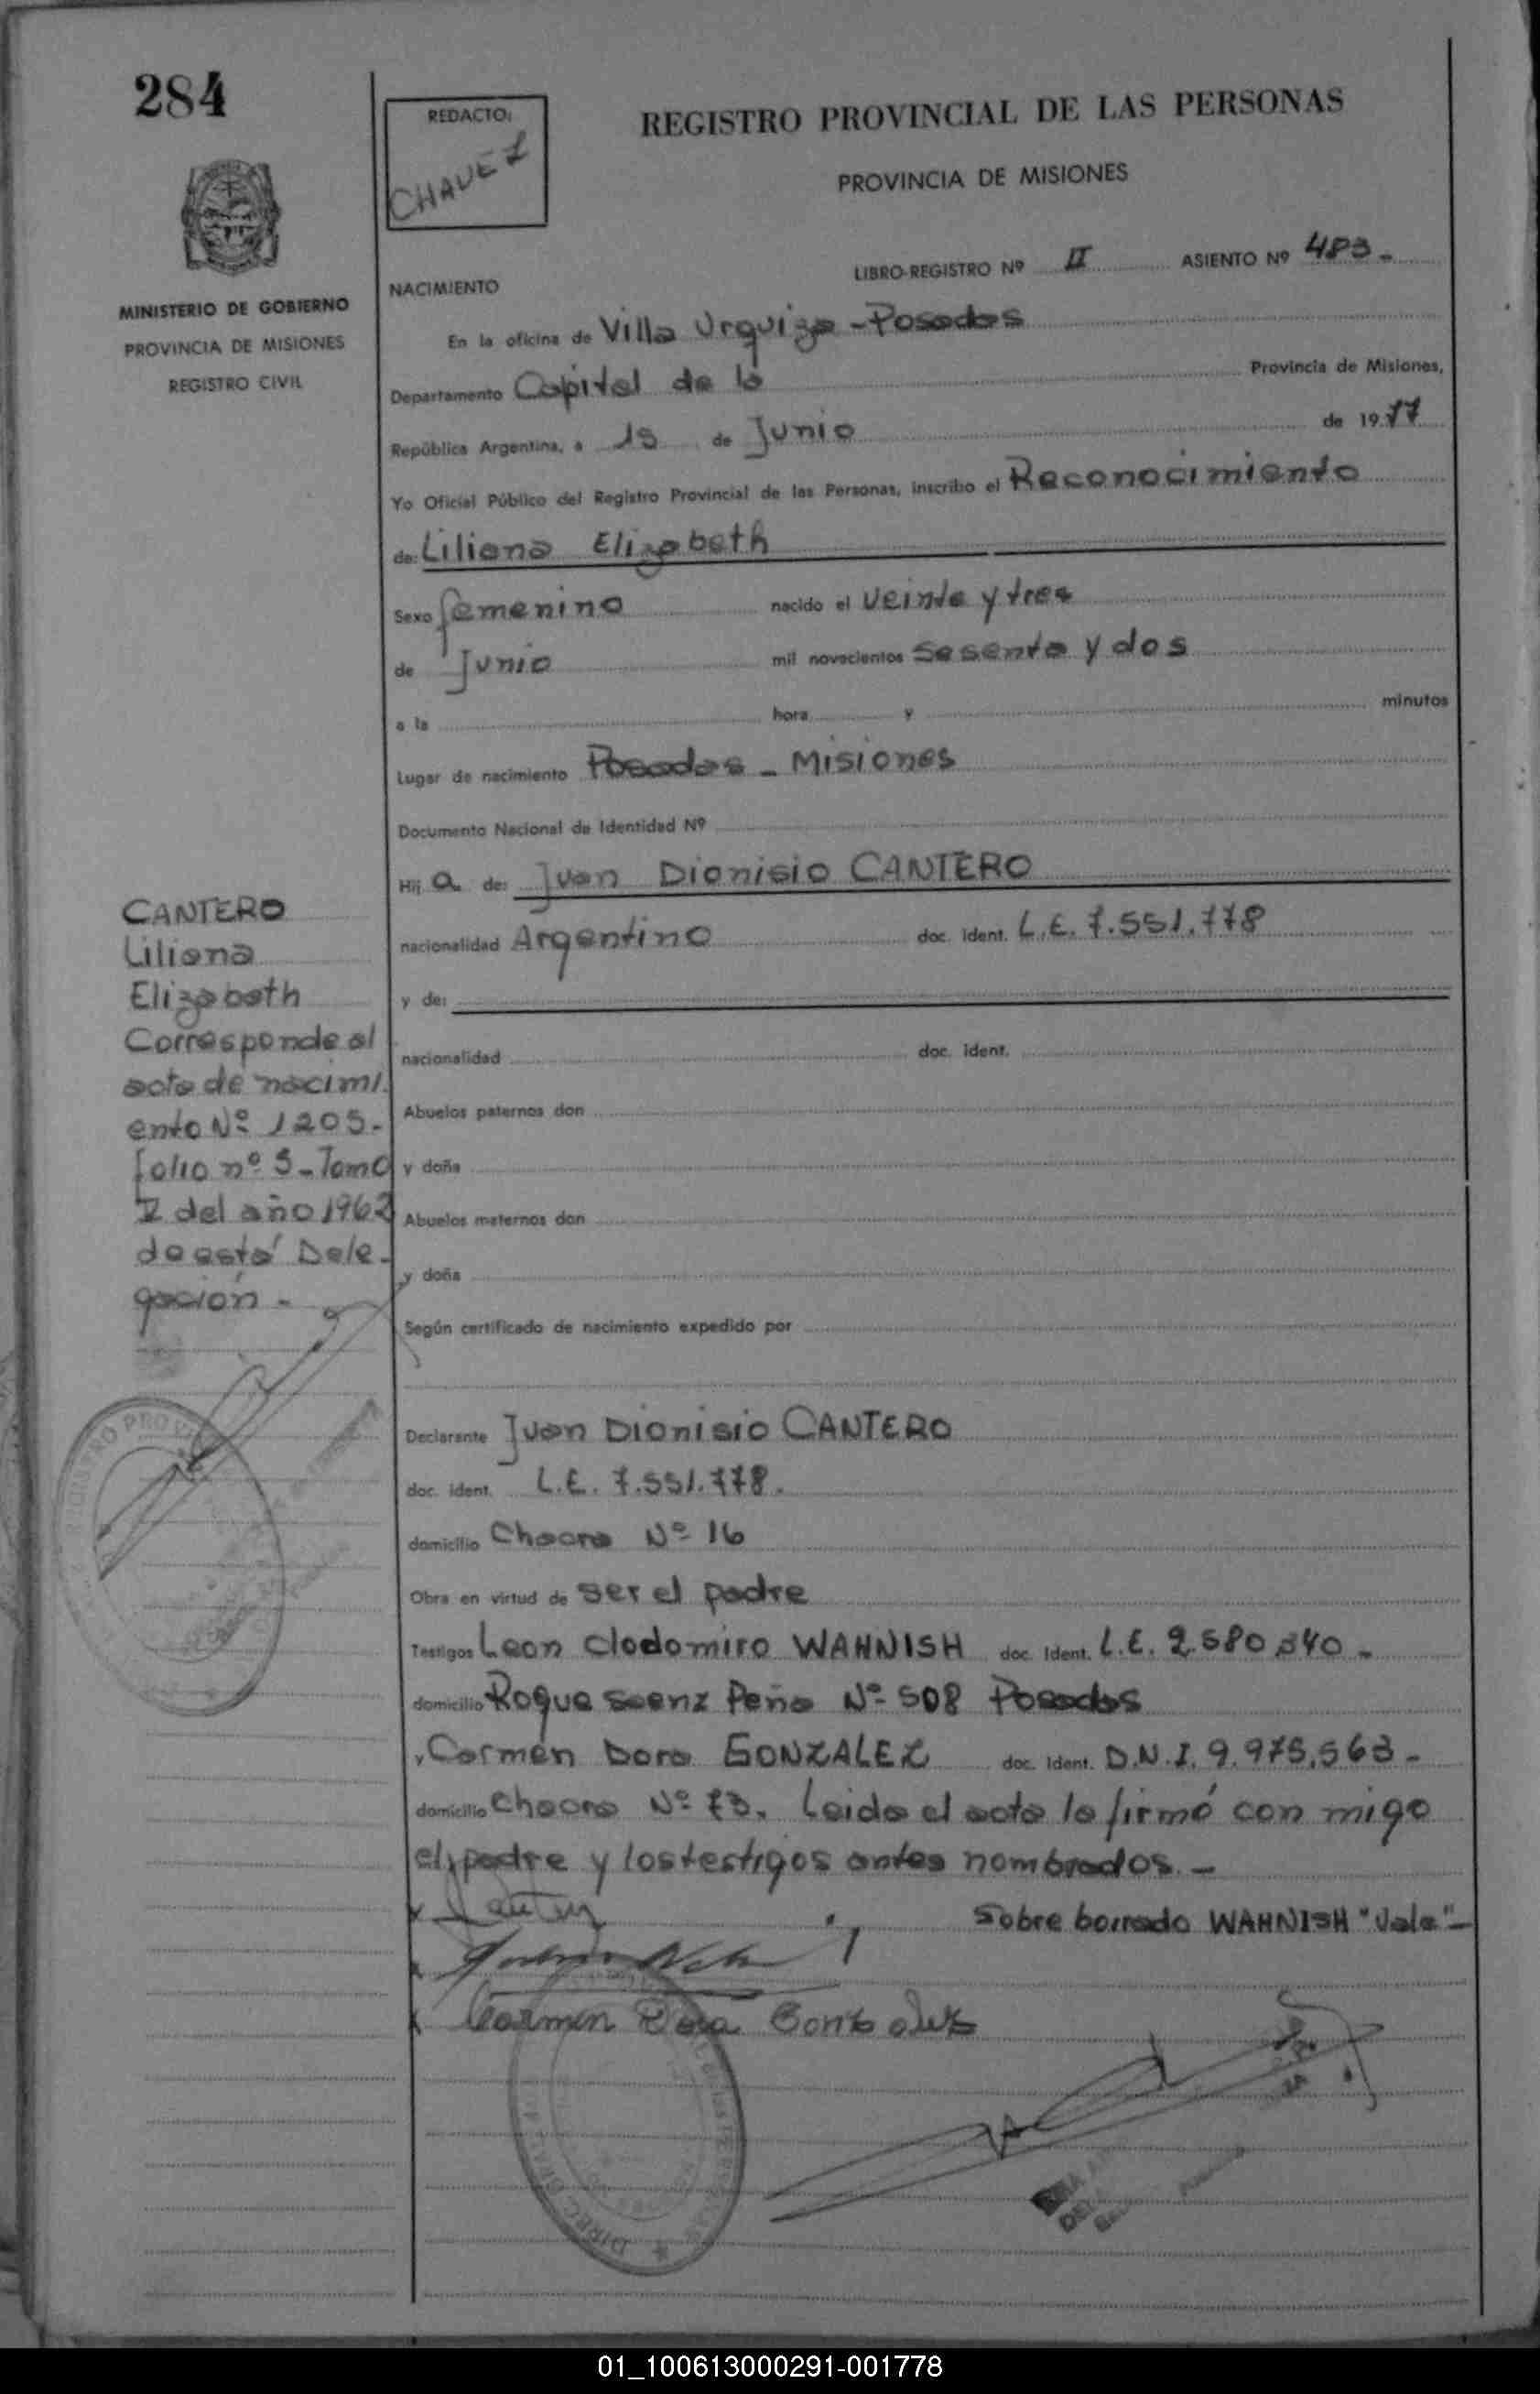 284
REDACTO:
CHAVEZ
REGISTRO PROVINCIAL DE LAS PERSONAS
PROVINCIA DE MISIONES
LIBRO-REGISTRO Nº II ASIENTO Nº 483.-
NACIMIENTO
MINISTERIO DE GOBIERNO
PROVINCIA DE MISIONES
REGISTRO CIVIL
En la oficina de Villa Urquiza - Posadas
Departamento Capital de la Provincia de Misiones,
República Argentina, a 15 de Junio de 1977
Yo Oficial Público del Registro Provincial de las Personas, inscribo el Reconocimiento
de: Liliana Elizabeth
Sexo femenino nacido el veinte y tres
de Junio mil novecientos sesenta y dos
a la hora y minutos
Lugar de nacimiento Posadas - Misiones
Documento Nacional de Identidad Nº
Hij a de: Juan Dionisio CANTERO
nacionalidad Argentino doc. ident. L.E. 7.551.778
y de:
nacionalidad doc. ident.
Abuelos paternos don
y doña
Abuelos maternos don
y doña
Según certificado de nacimiento expedido por
CANTERO
Liliana
Elizabeth
Corresponde al
acta de nacimi
ento Nº 1205.-
folio nº 5 - Tomo
I del año 1962
de esta Dele-
gación -
Declarante Juan Dionisio CANTERO
doc. ident. L.E. 7.551.778.
domicilio Chacra Nº 16
Obra en virtud de ser el padre
Testigos Leon Clodomiro WAHNISH doc. ident. L.E. 2.580.840.-
domicilio Roque Saenz Peña Nº 508 Posadas
y Carmen Dora GONZALEZ doc. ident. D.N.I. 9.975.563.-
domicilio Chacra Nº 73. Leida el acta la firmó con migo
el padre y los testigos antes nombrados.-
Sobre borrado WAHNISH "Vale"-
Carmen Dora Gonzalez
01_100613000291-001778